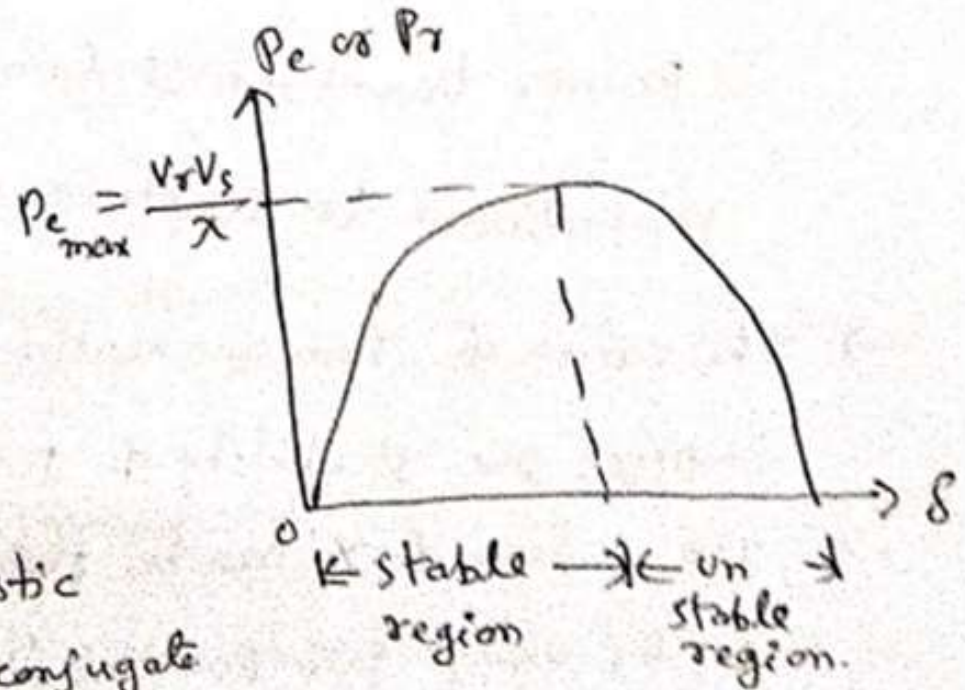 Pe or Pr
Pe max = VrVs / x
0
δ
stable region
un stable region.
stic
conjugate